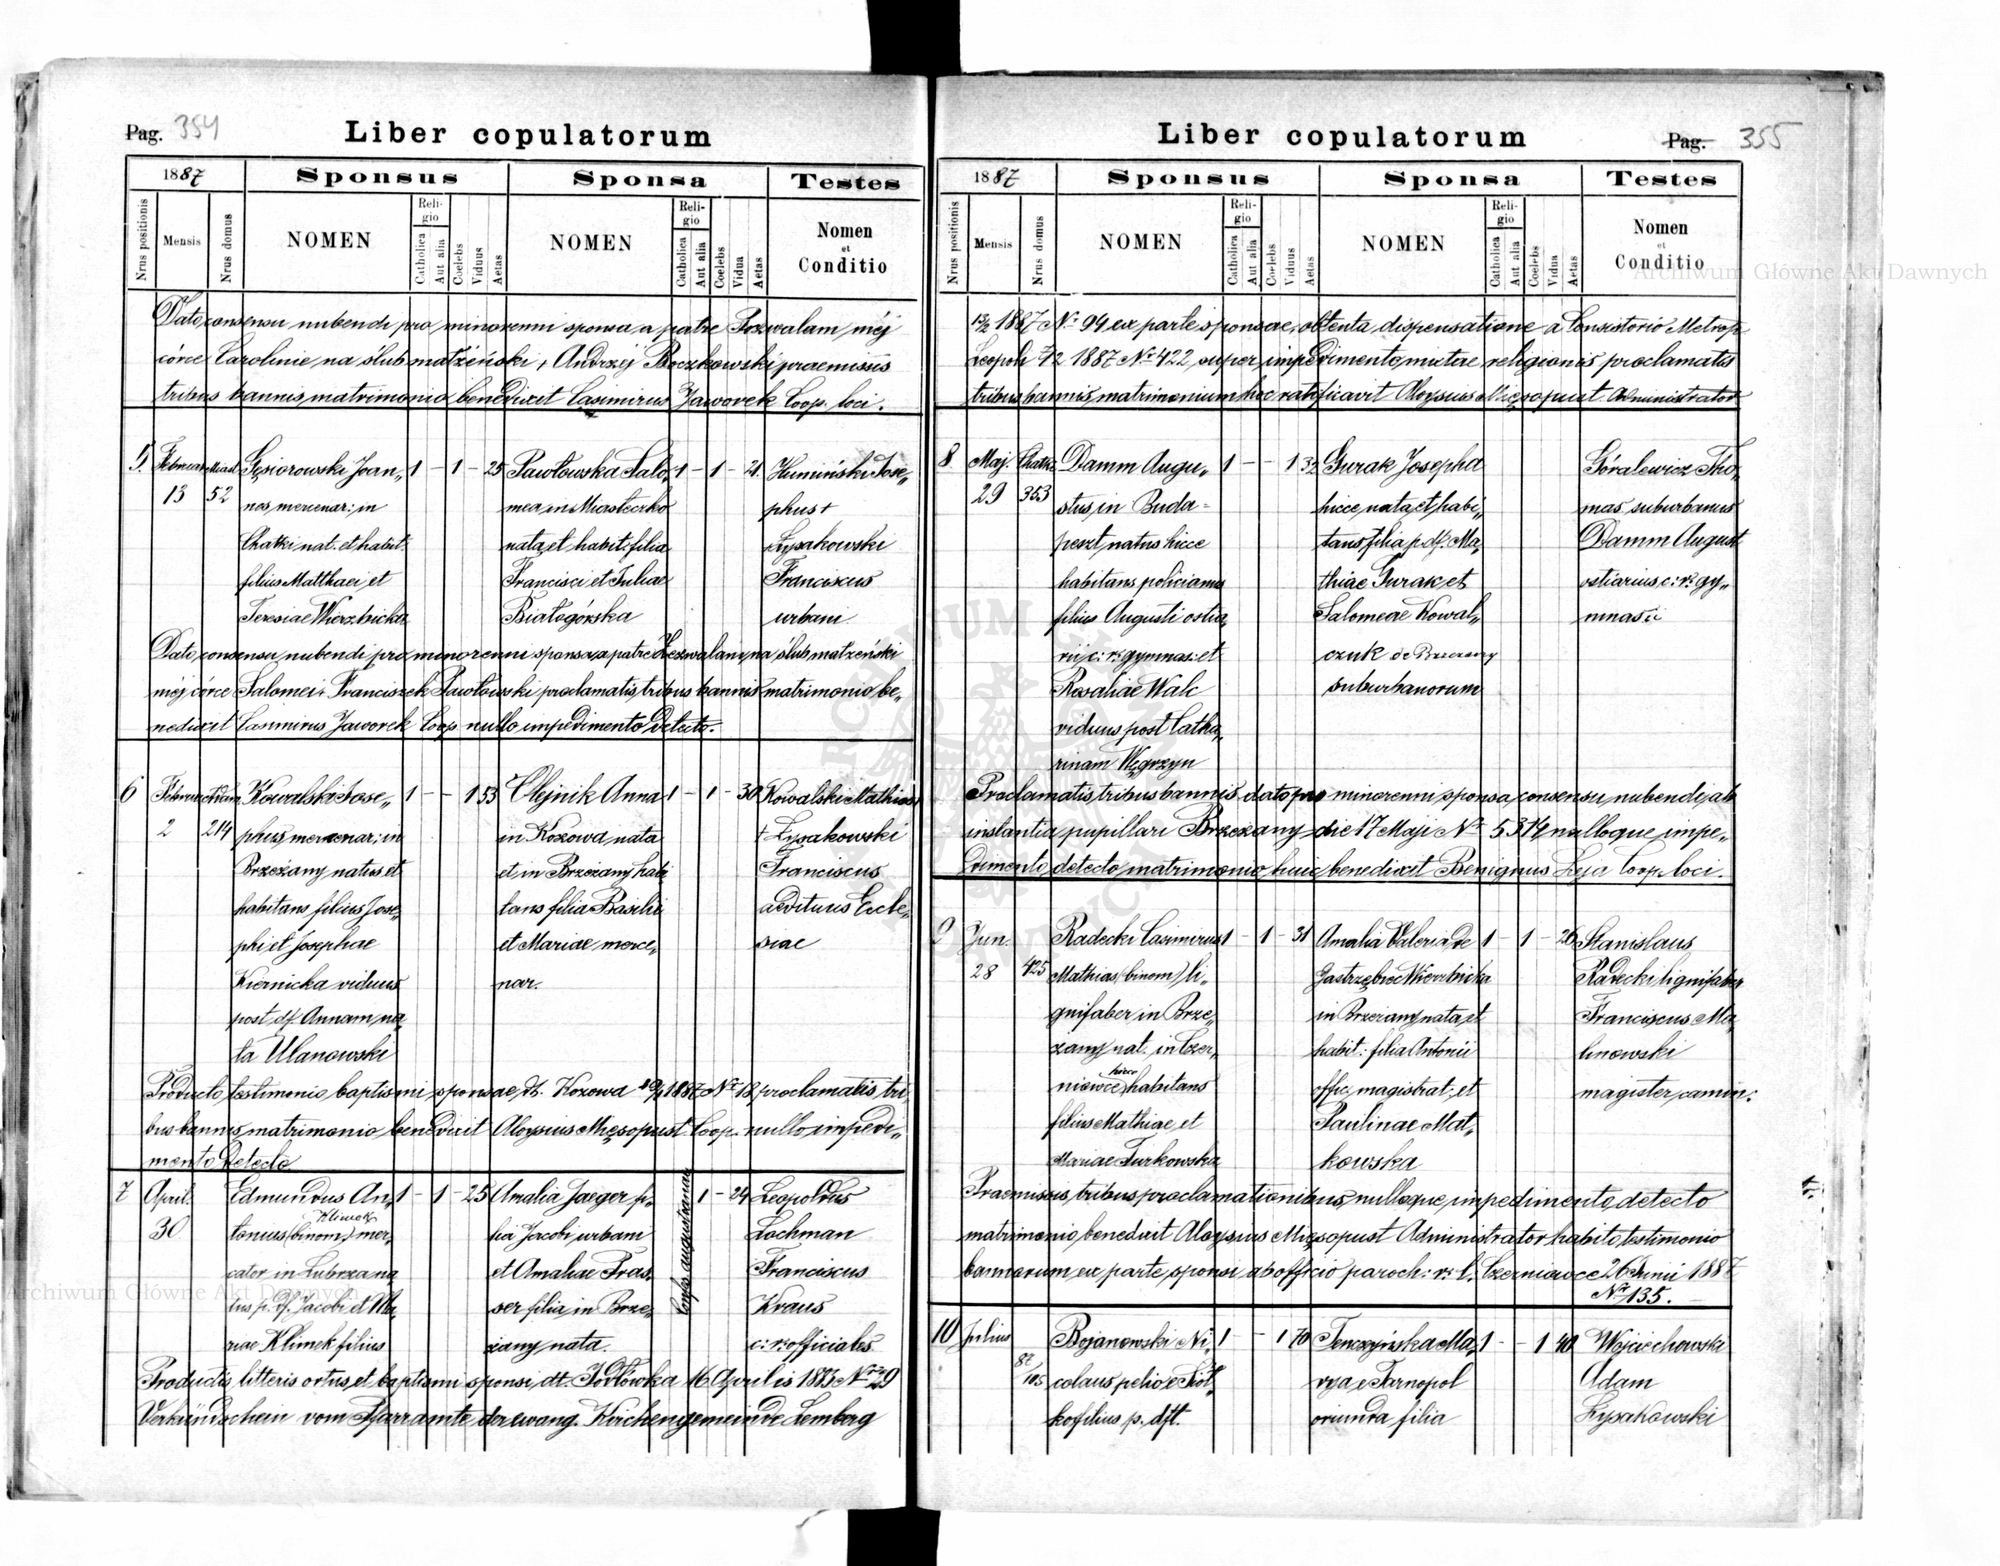 Pag. 354
Liber copulatorum
1887
Sponsus
Sponsa
Testes
Nrus positionis
Mensis
Nrus domus
NOMEN
Religio
Catholica
Aut alia
Coelebs
Viduus
Aetas
NOMEN
Religio
Catholica
Aut alia
Coelebs
Vidua
Aetas
Nomen
et
Conditio
Dato consensu nubendi pro minorenni sponsa a patre Zezwalam mej
córce Carolinie na ślub małżeński, Andrzej Boczkowski praemissis
tribus bannis matrimonio benedixit Casimirus Jaworek Coop. loci.
5. Februar 13
52
Gęsiorowski Joan„
nes mercenar: in
Chatki nat: et habit:
filius Matthaei et
Teresiae Wierzbicka
1 - 1 - 25
Pawłowska Salo„
mea in Miasteczko
nata et habit: filia
Francisci et Juliae
Białogórska
1 - 1 - 21
Humiński Jose„
phus +
Łysakowski
Franciscus
urbani
Dato consensu nubendi pro minorenni sponsa a patre Zezwalam na ślub małżeński
mej córce Salomei, Franciszek Pawłowski proclamatis tribus bannis matrimonio be„
nedixit Casimirus Jaworek Coop. nullo impedimento detecto.
6 Februar 2
214
Kowalski Jose„
phus mercenar: in
Brzeżany natus et
habitans filius Jose„
phi et Josephae
Kiernicka viduus
post df. Annam na„
ta Ulanowski
1 - - 1 53
Olejnik Anna
in Kozowa nata
et in Brzeżany habi
tans filia Basilii
et Mariae merce„
nar.
1 - 1 - 30
Kowalski Mathias
+ Łysakowski
Franciscus
aedituus Eccle„
siae
Producto testimonio baptismi sponsae dt. Kozowa 1887 Nr 18 proclamatis tri„
bus bannis matrimonio benedixit Aloysius Mięsopust Coop. nullo impedi„
mento detecto
7 April. 30
Edmundus An„
Klimek
tonius (binom.) mer„
cator in Lubrza na„
tus p. df. Jacobi et Ma„
riae Klimek filius
1 - 1 - 25
Amalia Jaeger fi„
lia Jacobi urbani
et Amaliae Fras„
ser filia in Brze„
żany nata.
augustanae
1 - 24
Leopoldus
Lochman
Franciscus
Kraus
c: r: officiales
Productis litteris ortus et baptismi sponsi dt. Jodłówka 16 Aprilis 1885 Nr 29
Verkündschein vom Pfarramte der evang. Kirchengemeinde Lemberg
Liber copulatorum
Pag. 355
1887
Sponsus
Sponsa
Testes
Nrus positionis
Mensis
Nrus domus
NOMEN
Religio
Catholica
Aut alia
Coelebs
Viduus
Aetas
NOMEN
Religio
Catholica
Aut alia
Coelebs
Vidua
Aetas
Nomen
et
Conditio
1887 Nr 94 ex parte sponsae, obtenta dispensatione a Consistorio Metrop.
Leopoli 7/2 1887 Nr 422 super impedimento mixtae religionis proclamatis
tribus bannis matrimonium hoc ratificavit Aloysius Mięsopust Administrator
8 Maj. 29
Chatki 353
Damm Augu„
stus, in Buda=
peszt natus hicce
habitans policianus
filius Augusti ostia„
rii c: r: gymnas: et
Rosaliae Walc
viduus post Catha„
rinam Węgrzyn
1 - - 1 32
Gurak Josepha
hicce nata et habi„
tans filia p. df. Ma„
thiae Gurak et
Salomeae Kowal„
czuk de Brzezany
suburbanorum
Góralewicz Tho„
mas suburbanus
Damm August
ostiarius c: r: gy„
mnasii
Proclamatis tribus bannis dato pro minorenni sponsa consensu nubendi ab
instantia pupillari Brzeżany die 17 Maji Nr 5314 nulloque impe„
dimento detecto matrimonio huic benedixit Benignus Leja Coop. loci.
9 Jun. 28
425
Radecki Casimirus
Mathias (binom.) li„
gnifaber in Brze„
żany nat. in Czer„
hicce
niowce habitans
filius Mathiae et
Mariae Turkowska
1 - 1 - 31
Amalia Valeria de
Jastrzębiec Wierzbicka
in Brzeżany nata et
habit: filia Antonii
offic. magistrat: et
Paulinae Mat„
kowska
1 - 1 - 26
Stanislaus
Radecki lignifaber
Franciscus Ma„
linowski
magister camin:
Praemissis tribus proclamationibus nulloque impedimento detecto
matrimonio benedixit Aloysius Mięsopust Administrator habito testimonio
bannorum ex parte sponsi ab officio paroch: r: l: Czerniowce 26 Junii 1887
Nr 135.
10 Julius
87/105
Bojanowski Ni„
colaus pelio e Tłot„
ko filius p. dft.
1 - - 1 70
Tenczyńska Ma„
rya e Tarnopol
oriunda filia
1 - - 1 40
Wojciechowski
Adam
Łysakowski
Archiwum Główne Akt Dawnych
Archiwum Główne Akt Dawnych